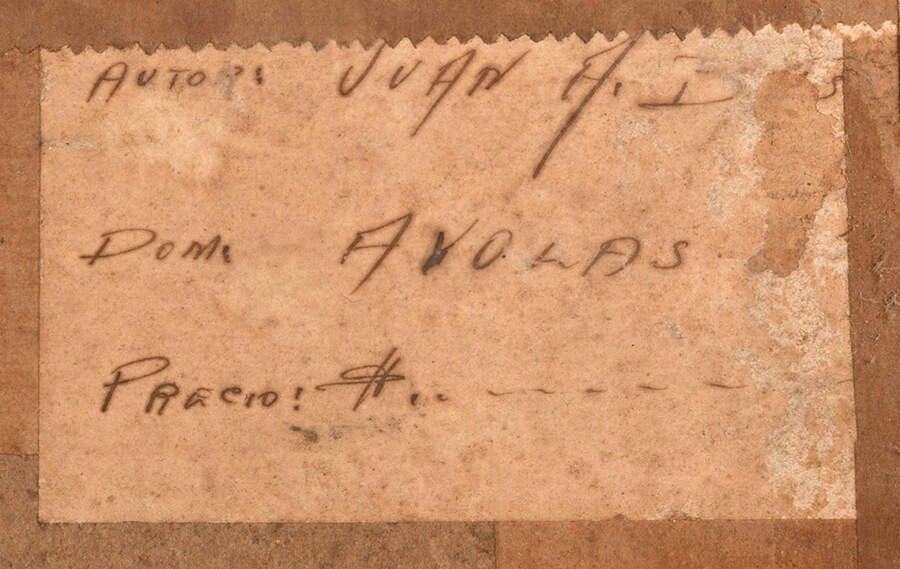 AUTOR: JUAN A.
DOM: AVOLAS
PRECIO: $.. - - - - -